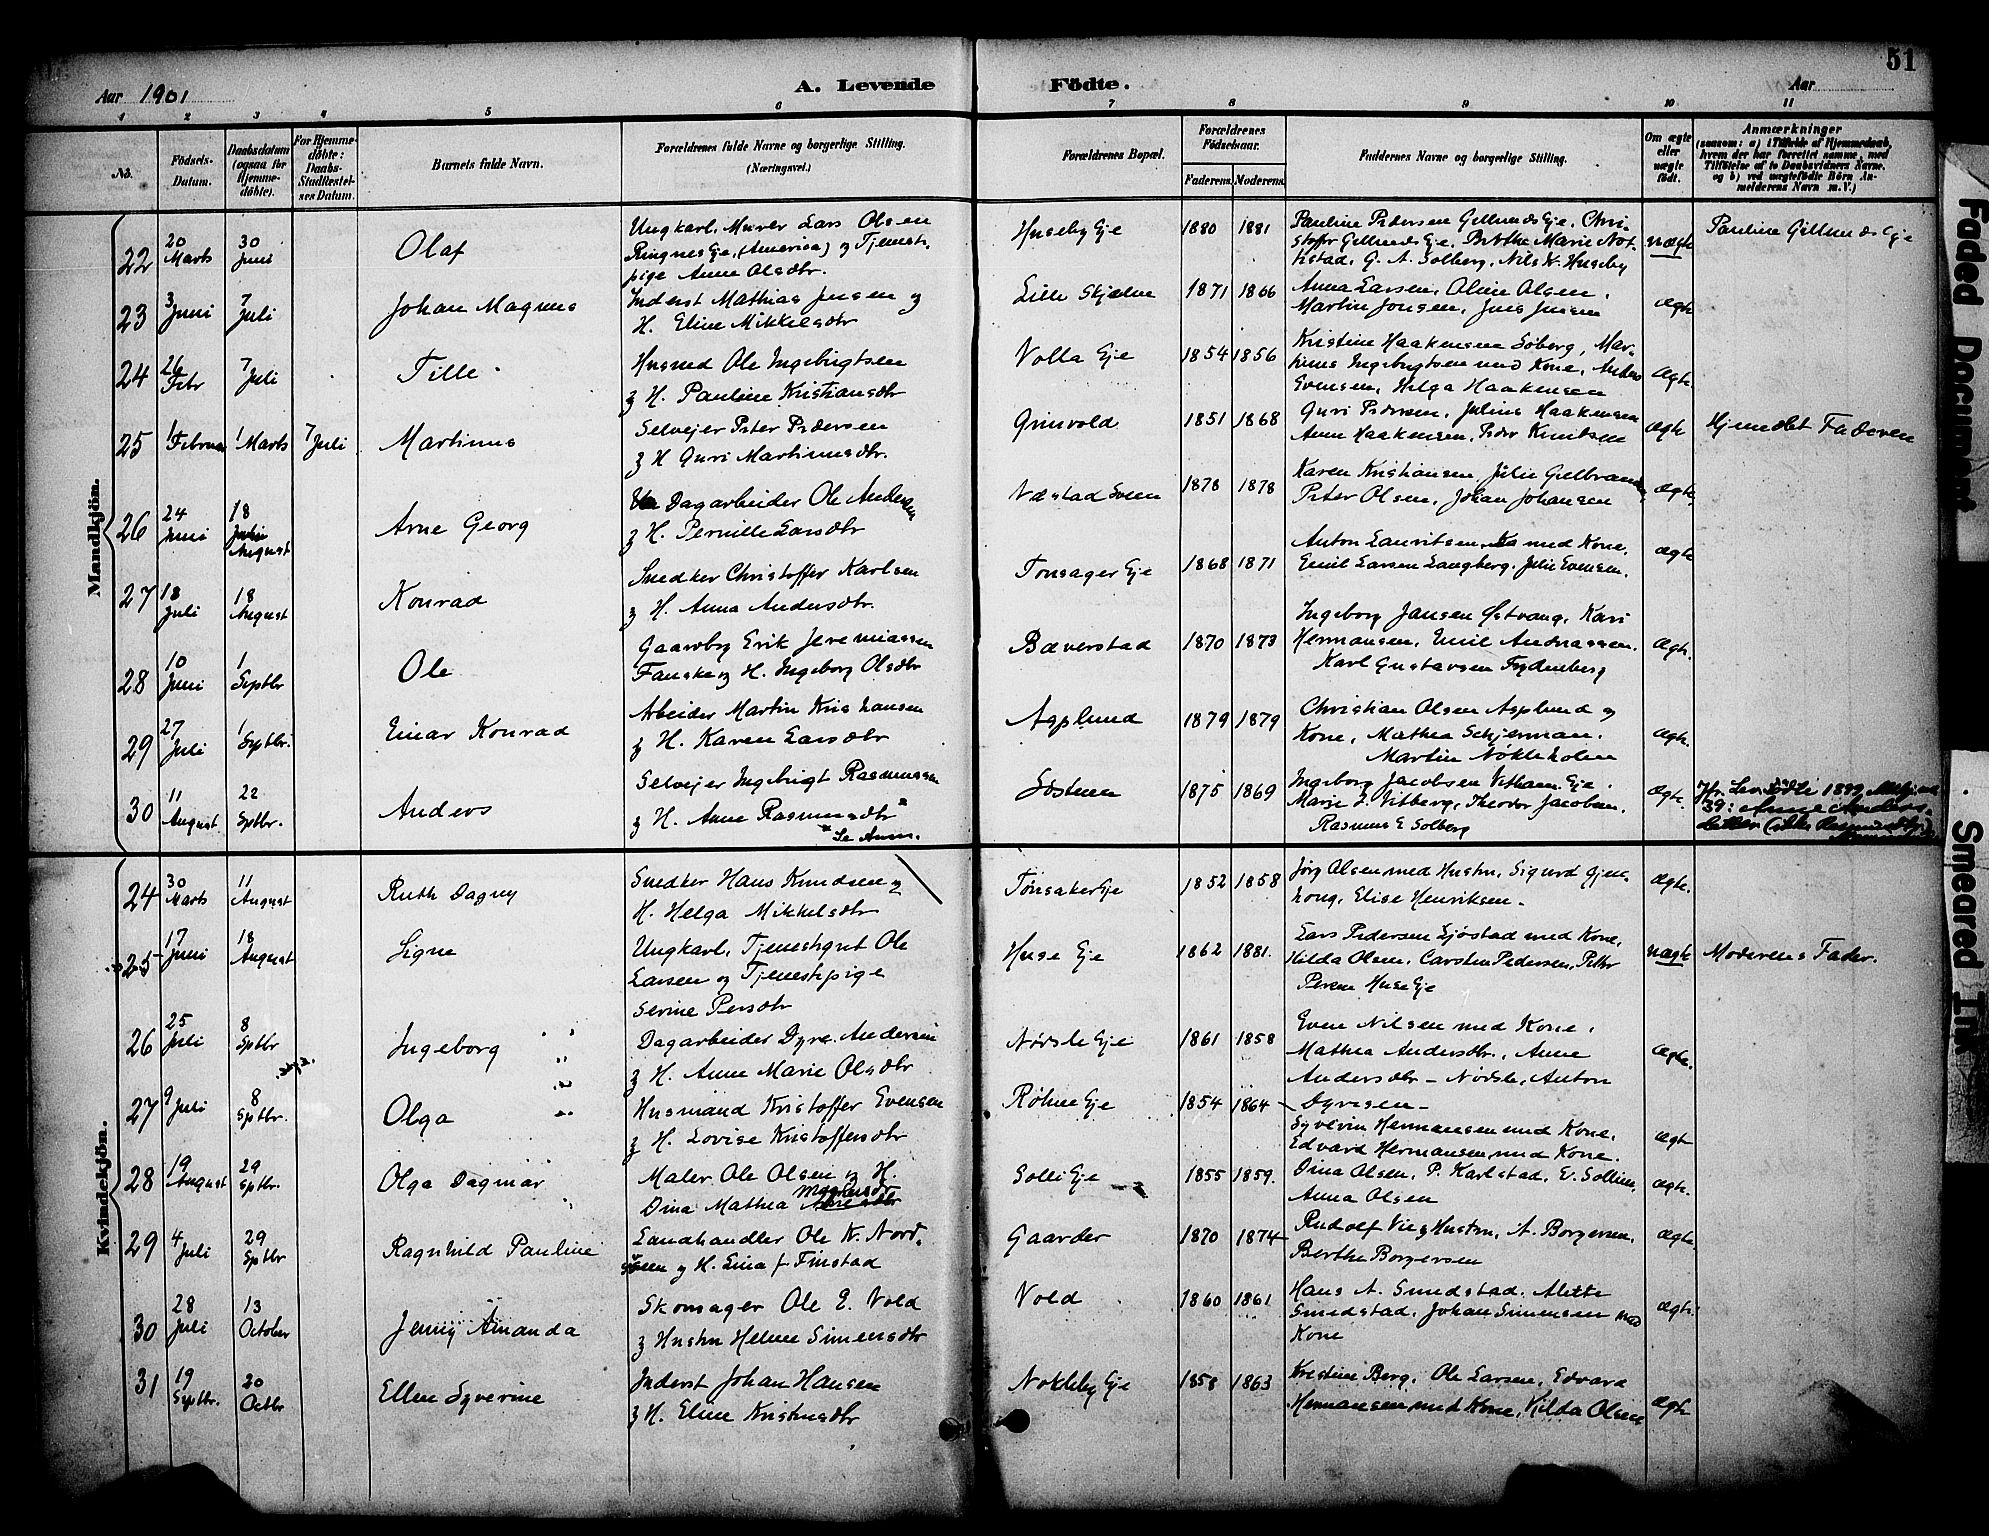 51
Aar 1901 A. Levende Födte. Aar
1 2 3 4 5 6 7 8 9 10 11
No. Födsels-Datum. Daabsdatum (ogsaa för Hjemmedöbte). For Hjemmedöbte: Daabs-Stadfæstelses Datum. Barnets fulde Navn. Forældrenes fulde Navne og borgerlige Stilling. (Næringsvei.) Forældrenes Bopæl. Forældrenes Födselsaar. Faderens. Moderens. Faddernes Navne og borgerlige Stilling. Om ægte eller uægte födt. Anmærkninger (saasom: a) i Tilfælde af Hjemmedaab, hvem der har forrettet samme, med Tilföielse af to Daabsvidners Navne, og b) ved uægtefödte Börn Anmelderens Navn m. V.)
Mandkjön.
22 20 Marts 30 Juni Olaf Ungkarl, Murer Lars Olsen
Ringnes Eje, (America) og Tjenest-
pige Anne Olsdtr. Huseby Eje 1880 1881 Pauline Pedersen Gillunds Eje, Chri-
stofer Gillunds Eje, Berthe Marie
G. A. Solberg, Nils K. Huseby uægte Pauline Gillunds Eje
23 3 Juni 7 Juli Johan Magnus Inderst Mathias Jensen og
H. Eline Mikkelsdtr Lille Skjælm 1871 1866 Anna Larsen, Oline Olsen,
Martin Jonsen, Jens Jensen ægte
24 26 Febr 7 Juli Tille Husmd Ole Ingebrigtsen
og H. Pauline Kristiansdtr Volla Eje 1854 1856 Kristine Haakensen Soberg, Mar-
tinus Ingebrigtsen med Kone, Anders
Evensen, Helga Haakensen ægte.
25 1 Februar 1 Marts 7 Juli Martinus Selvejer Peter Pedersen
og H Guri Martinusdtr. Grinvold 1851 1868 Guri Pedersen, Julius Haakensen
Anne Haakensen, Peder Knutsen ægte Hjemdøbt Faderen
26 24 Juni 18 August Arne Georg Dagarbeider Ole Andersen
og H. Pernille Larsdtr Næstad 1878 1878 Karen Kristiansen, Julie Gulbrandsen
Peter Olsen, Johan Johansen ægte.
27 18 Juli 18 August Konrad Snedker Christoffer Karlsen
og H. Anna Andersdtr. Tonsager Eje 1868 1871 Anton Lauritsen med Kone,
Emil Larsen Langberg, Julie Evensen. ægte
28 10 Juni 1 Septbr Ole Gaardbr Erik Jeremiassen
Fanske og H. Ingeborg Olsdtr Bæverstad 1870 1873 Ingeborg Jansen Østvang, Kari
Hermansen, Emil Andreassen.
Karl Gustavsen Frydenberg ægte.
29 27 Juli 1 Septbr. Einar Konrad Arbeider Martin Kristiansen
og H. Karen Larsdtr Asplund 1879 1879 Christian Olsen Asplund og
Kone, Mathea Schjerman,
Martin Nøkleholm ægte.
30 11 August 22 Septbr. Anders Selvejer Ingebrigt Rasmussen
og H. Anne Rasmusdtr*
*Se Anm. 1875 1869 Ingeborg Jacobsen Eje.
Marie L. Vitberg, Theodor Jacobsen.
Rasmus E Solberg ægte. Jfr. Lev. Födte 1899
39: Anne Anders-
datter (ikke Rasmusdtr)
Kvindekjön.
24 30 Marts 11 August Ruth Dagny Snedker Hans Knudsen og
H. Helga Mikkelsdtr Tønsaker Eje 1852 1858 Jørg Olsen med Hustru, Sigurd Gjen-
Elise Henriksen. ægte.
25 17 Juni 18 August Signe Ungkarl, Tjenestgut Ole
Larsen og Tjenestepige
Serine Persdtr Huse Eje 1862 1881. Lars Pedersen Sjøstad med Kone,
Hilda Olsen, Carsten Pedersen, Petter
Persen Huse Eje uægte Moderens Fader.
26 25 Juli 8 Septbr Ingeborg Dagarbeider Dyre Andersen
og H. Anne Marie Olsdtr Nørsle Eje 1861 1858 Even Nilsen med Kone,
Mathea Andersdtr., Anne
Andersdtr – Nørsle, Anton
Dyresen – ægte.
27 9 Juli 8 Septbr. Olga Husmand Kristoffer Evensen
og H. Lovise Kristoffersdtr Røhne Eje 1854 1864 Syverin Hermansen med Kone,
Edvard Hermansen med Kone. ægte
28 19 August 29 Septbr. Olga Dagmar Maler Ole Olsen og H.
Dina Mathea Solli Eje 1855 1859. Dina Olsen, P. Karlstad, E. Sollien,
Anna Olsen ægte.
29 4 Juli 29 Septbr Ragnhild Pauline Landhandler Ole K. Nord-
seen og H. Lina f Finstad Gaarder 1870 1874 Rudolf Vie og Hustru, A. Borgersen,
Berthe Borgersen ægte
30 28 Juli 13 October Jenny Amanda Skomager Ole E. Vold
og Hustru Helene Simensdtr Vold 1860 1861 Hans A. Smedstad, Alette
Smedstad, Johan Simensen med
Kone ægte
31 19 Septbr. 20 Octbr Ellen Syverine Inderst Johan Hansen
og H. Eline Kristensdtr Nokleby Eje 1858 1863 Kristine Berg, Ole Larsen, Edvard
Hermansen med Kone, Hilda Olsen ægte
Faded Document
. Smeared Ink